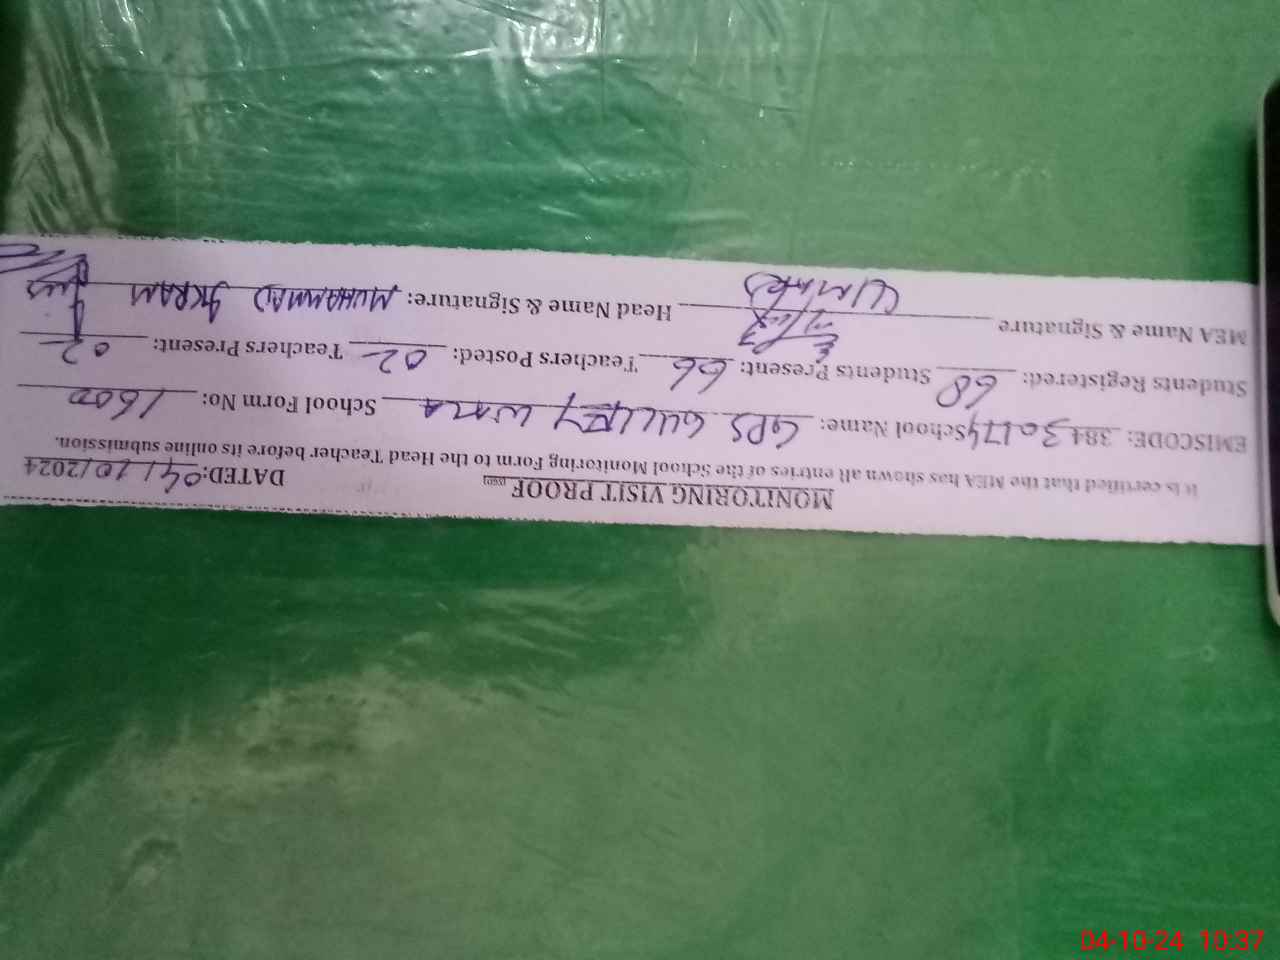 MONITORING VISIT PROOF DATED: 04/10/2024
It is certified that the MEA has shown all entries of the School Monitoring Form to the Head Teacher before its online submission.
EMISCODE: 38430174 School Name: GPS School Form No: 1600
Students Registered: 68 Students Present: 66 Teachers Posted: 02 Teachers Present: 02
MEA Name & Signature Head Name & Signature: MUHAMMAD IKRAM
04-10-24 10:37